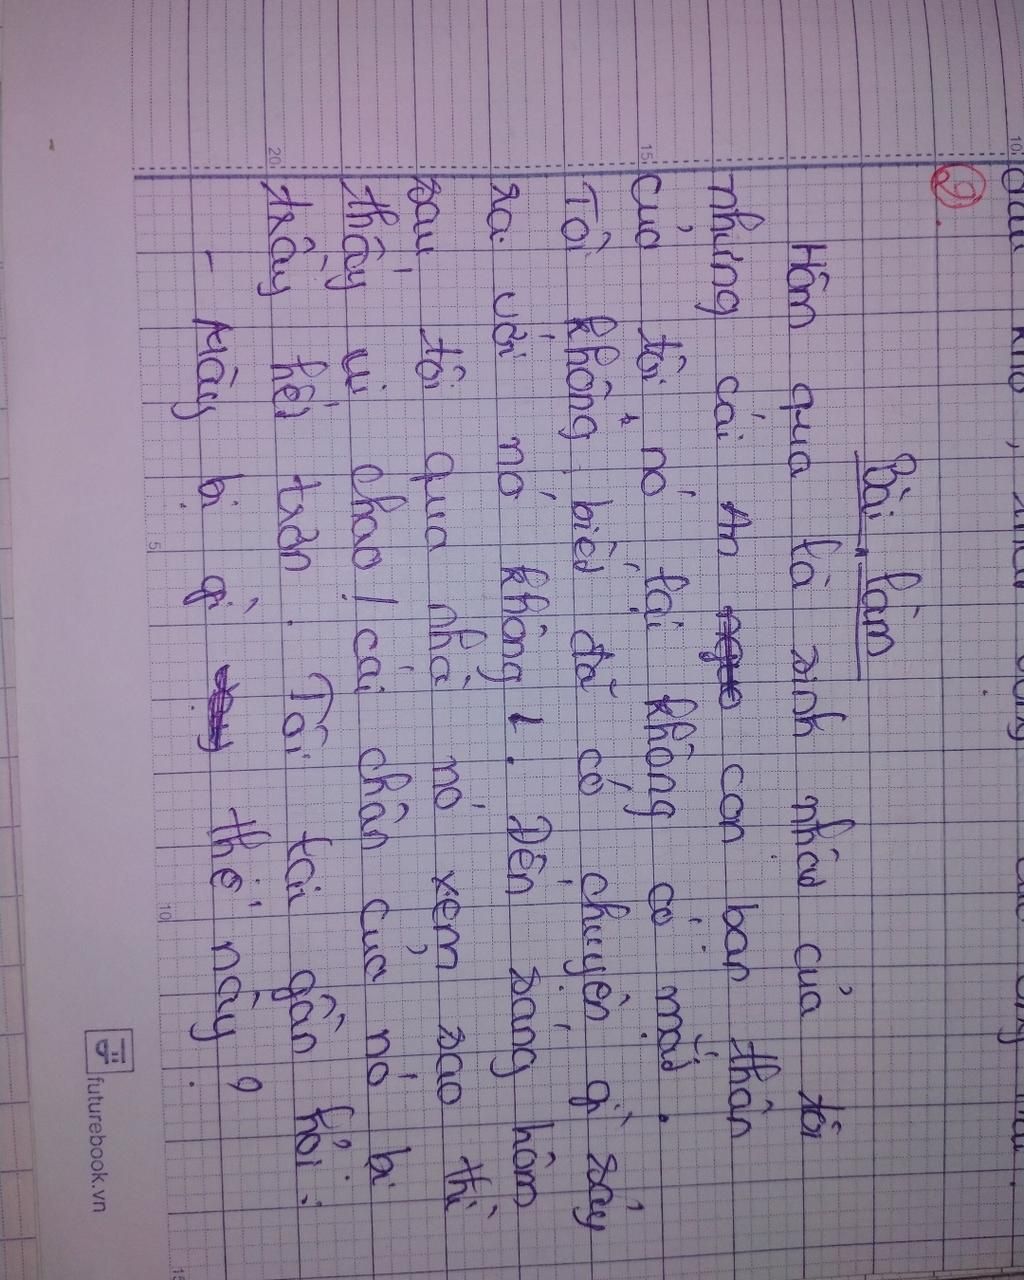 ②.
Bài làm
Hôm qua là sinh nhật của tôi
nhưng cái An con bạn thân
của tôi nó lại không có mặt.
Tôi không biết đã có chuyện gì sảy
ra với nó không. Đến sáng hôm
sau tôi qua nhà nó xem sao thì
thấy ui chao! cái chân của nó bị
trầy hết trơn. Tôi tới gần hỏi:
- Mày bị gì thế này?
futurebook.vn
10
15
20
5
10
15